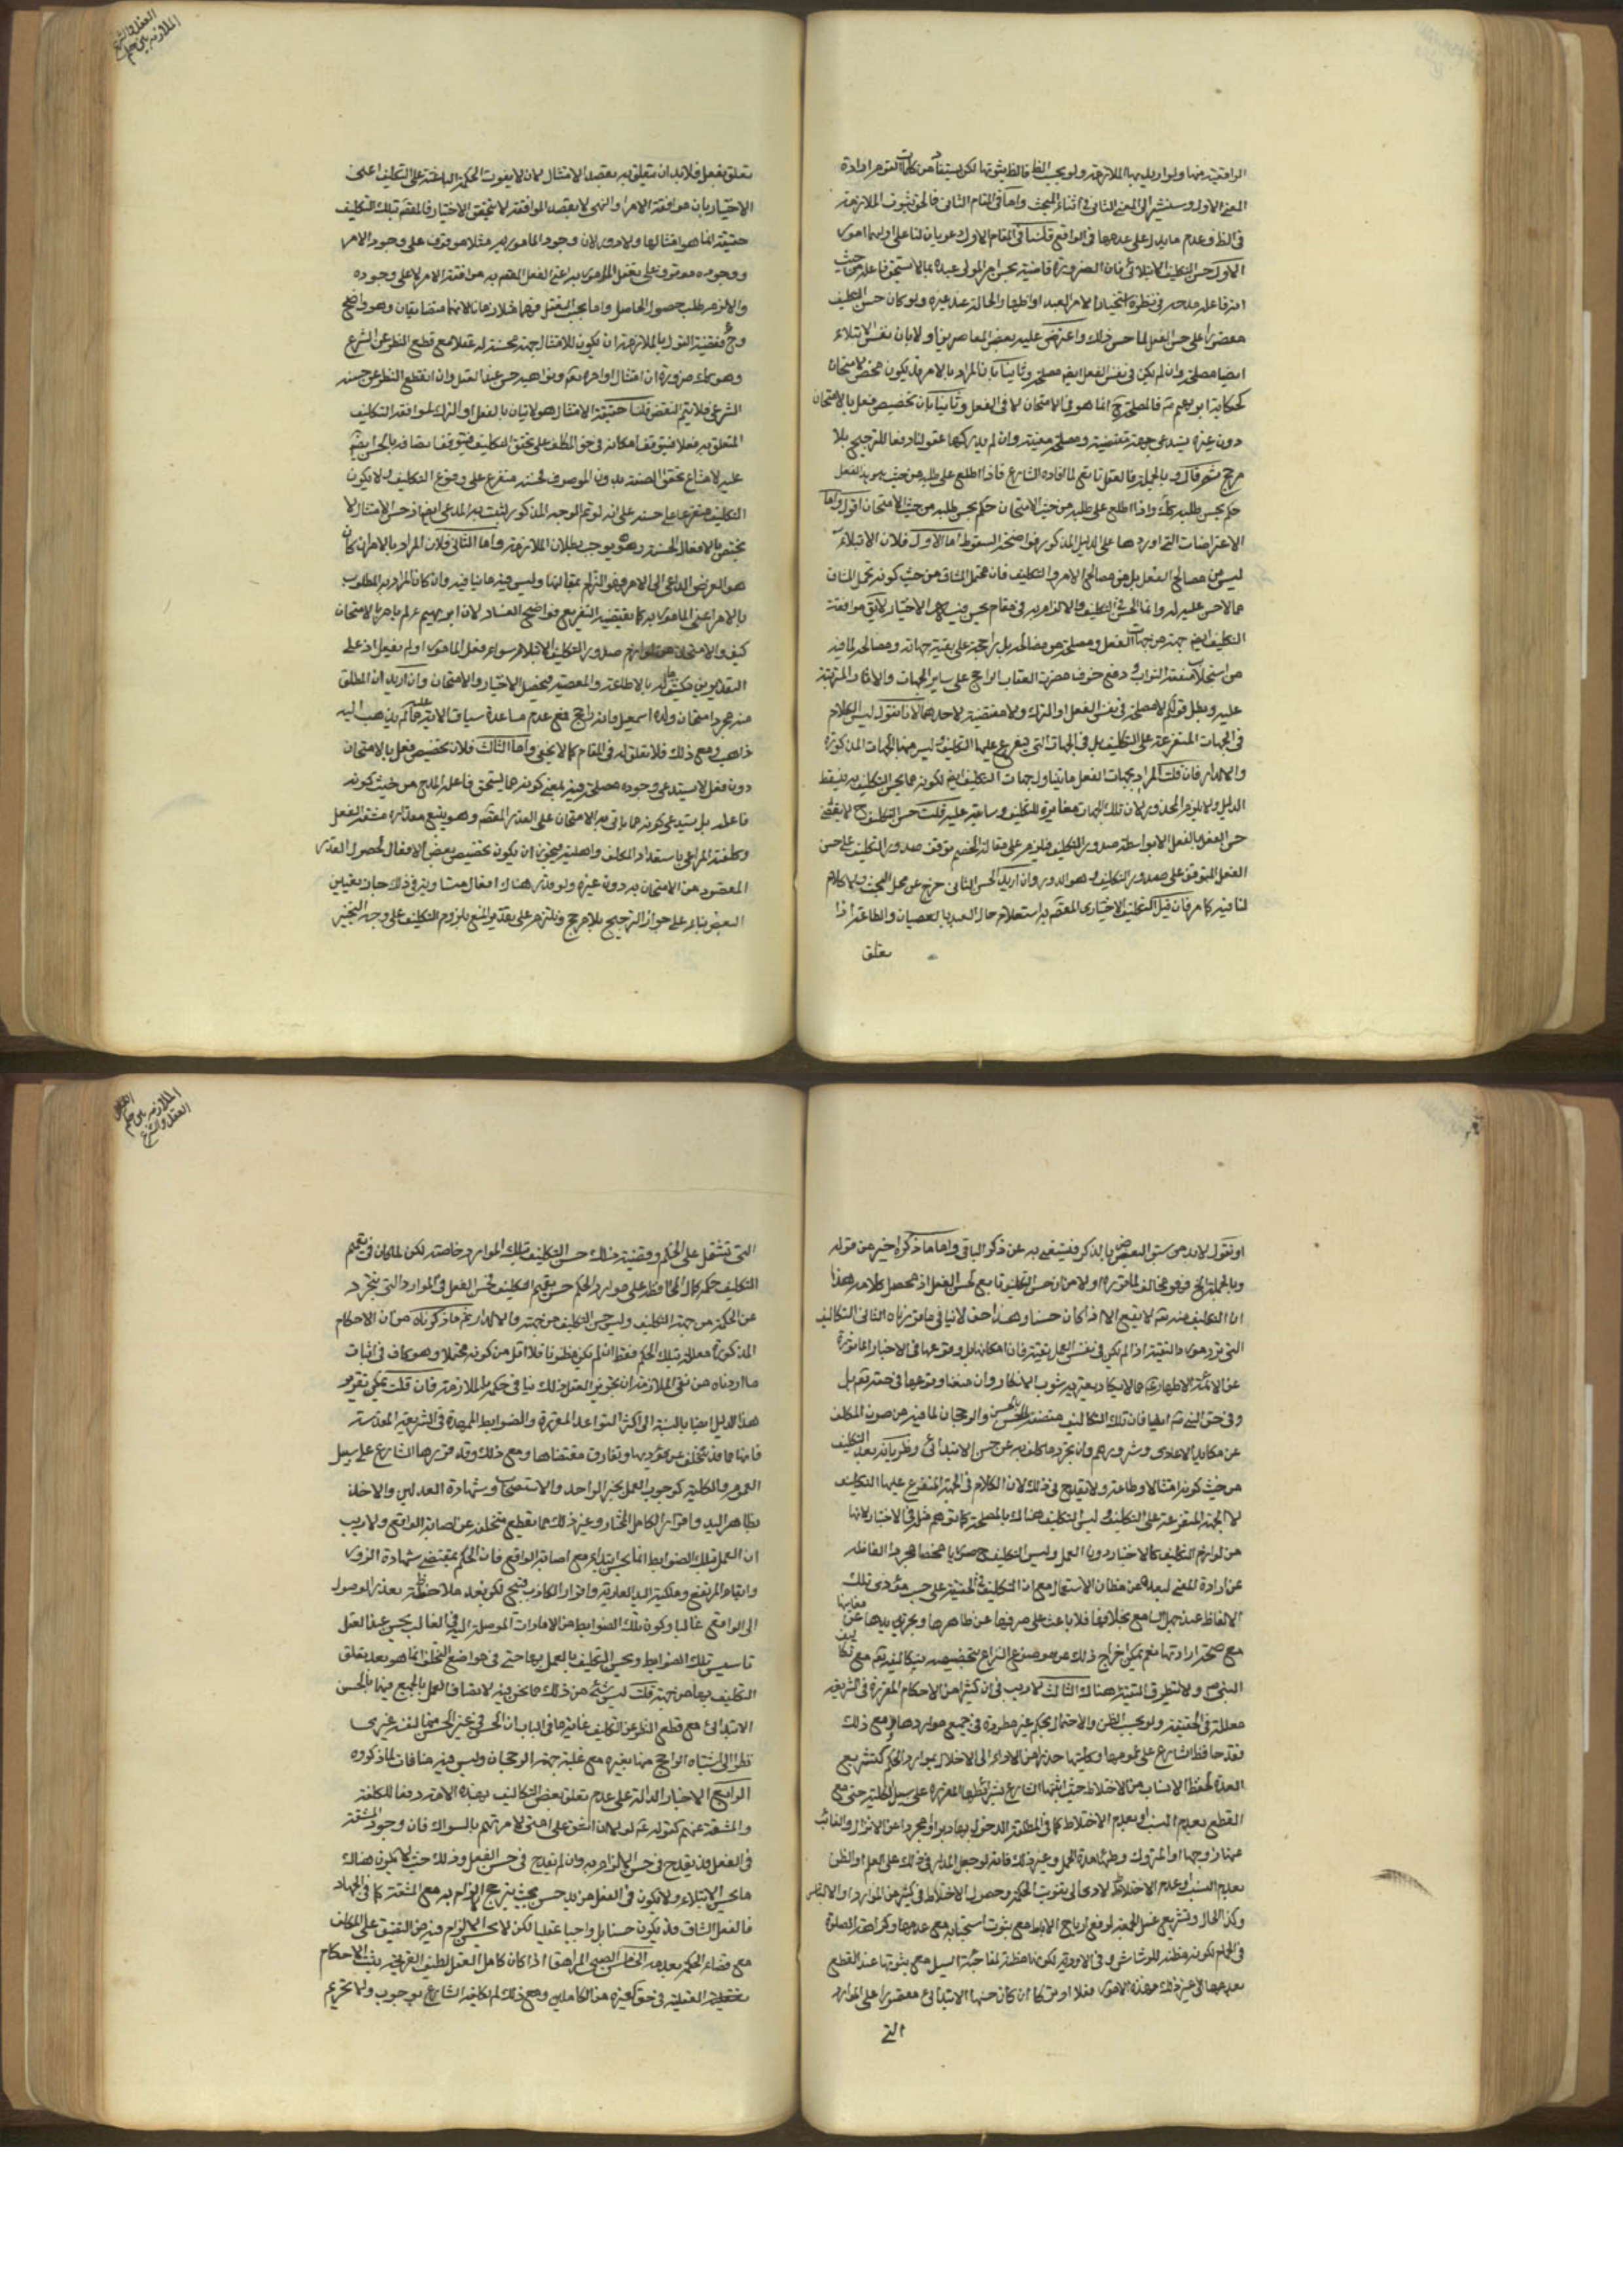 الملازمة بين حكم
العقل والشرع
الواقعية منها ولو اريد بها الملازمة ولو بحسب الظ فالظ ثبوتها لكن يستفاد من كلمات القوم ارادة
المعنى الاول وسنشير الى المعنى الثاني في اثناء المبحث واما في المقام الثاني فالحق ثبوت الملازمة
في الظ وعدم ما يدل على عدمها في الواقع قلنا في المقام الاول دعويان لنا على اوليهما امور
الاول حسن التكليف الابتلائي فان الضرورة قاضية بحسن امر المولى عبده بما لا يستحق فاعله من حيث
انه فاعله مدحه في نظره استخبارا لامر العبد او اظهارا لحاله عند غيره ولو كان حسن التكليف
مقصورا على حسن الفعل لما حسن ذلك واعترض عليه بعض المعاصرين اولا بان نفس الابتلاء
ايضا مصلحة وان لم يكن في نفس الفعل ايضا مصلحة وثانيا بان المراد بالامر قد يكون محض الامتحان
كحكاية ابرهيم ع فالمصلحة ح انما هو في الامتحان لا في الفعل وثالثا بان تخصيص فعل بالامتحان
دون غيره يستدعي جهة مقتضية ومصلحة معينة وان لم يدركها عقولنا دفعا للترجيح بلا
مرجح ثم قال وبالجملة فالعقل تابع لما افاده الشارع فاذا اطلع على طلبه من حيث يريد الفعل
حكم بحسن طلبه كك واذا اطلع على طلبه من حيث الامتحان حكم بحسن طلبه من حيث الامتحان اقول واما
الاعتراضات التي اوردها على الدليل المذكور فواضحة السقوط اما الاول فلان الابتلاء
ليس من مصالح الفعل بل من مصالح الامر والتكليف فان تحمل المشاق من حيث كونه تحمل المشاق
مما لا حسن عليه له وانما الحسن في التكليف والالزام به في مقام يحسن فيه الاختيار لا يق موافقة
التكليف ايضا جهة من جهات الفعل ومصلحة من مصالحه بل راجحة على بقية جهاته ومصالحه لما فيه
من استجلاب منفعة الثواب ودفع خوف مضرة العقاب الراجح على ساير الجهات والاثار المترتبة
عليه وبطل قولكم لا مصلحة في نفس الفعل او الترك ولا مقتضية لاحدهما لانا نقول ليس الكلام
في الجهات المتفرعة على التكليف بل في الجهات التي يتفرع عليها التكليف وليس منها الجهات المذكورة
والا لدار فان قلت المراد بجهات الفعل ما يتناول جهات التكليف ايضا لكونه مما يحسن التكليف به فيسقط
الدليل ولا يلزم المحذور لان تلك الجهات مغايرة للتكليف وسابقة عليه قلت حسن التكليف ح لا يقتضي
حسن الفعل بالفعل الا بواسطة صدور التكليف فيلزم على مقالة الخصم توقف صدور التكليف على حسن
الفعل المتوقف على صدور التكليف وهو الدور وان اريد الحسن الثاني خرج عن محل البحث ولا كلام
لنا فيه كما مر فان قيل التكليف الاختياري المقصود به استعلام حال العبد بالعصيان والطاعة اذا
تعلق
تعلق بفعل فلا بد ان يتعلق به بقصد الامتثال لئلا يفوت الحكمة الباعثة على التكليف اعنى
الاختيار بان موافقة الامر او النهى لا بقصد الموافقة لا يتحقق الاختيار فالمقصود بتلك التكليف
حقيقة انما هو امتثالها ولا دور لان وجود المامور به مثلا موقوف على وجود الامر
ووجوده موقوف على تعقل المامور به اعنى الفعل المقصود به موافقة الامر لا على وجوده
والا لزم طلب حصول الحاصل وانما يجب التعقل فيهما متلازما لانهما متضايفان وهو واضح
وح فقضية القول بالملازمة ان يكون للامتثال جهة محسنة له عقلا مع قطع النظر عن الشرع
وهو كك ضرورة ان امتثال اوامره تعم ونواهيه حسن عند العقل وان انقطع النظر عن حسنه
الشرعي فلا يتم النقض قلنا حقيقة الامتثال هو الاتيان بالفعل او الترك لموافقة التكليف
المتعلق به فعلا فيتوقف امكانه في حق المكلف على تحقق التكليف فيتوقف اتصافه بالحسن ايضا
عليه لامتناع تحقق الصفة بدون الموصوف فحسنه متفرع على وقوع التكليف فلا يكون
التكليف متفرعا على حسنه على انه لو تم الوجه المذكور لثبت به المدعى ايضا اذ حسن الامتثال لا
يختص بالافعال الحسنة وهو يوجب بطلان الملازمة واما الثاني فلان المراد بالامر ان كان
هو الغرض الداعي الى الامر فهو التزام بمقالتنا وليس فيه ما ينافيه وان كان المراد به المطلوب
بالامر اعنى المامور به كما يقتضيه التفريع فواضح الفساد لان ابرهيم ع لم يامر بالامتحان
كيف والامتحان من لوازم صدور التكليف الابتلائي سواء فعل المامور او لم يفعل اذ على
التقديرين ينكشف حاله بالاطاعة والمعصية فيحصل الاختبار والامتحان وان اريد ان المطلق
منه مجرد امتحان ولده اسمعيل فانه راجح فمع عدم مساعدة سياق الاية عليه مما لم يذهب اليه
ذاهب ومع ذلك فلا تعلق له في المقام كما لا يخفى واما الثالث فلان تخصيص فعل بالامتحان
دون فعل لا يستدعي وجود مصلحة فيه لمعنى كونه مما يستحق فاعله المدح من حيث كونه
فاعله بل يستدعي كونه مما يتاتى به الامتحان على القدر المقصود وهو يتبع مقدار مشقة الفعل
وكلفته المراعى باستعداد المكلف واهليته فيجوز ان يكون تخصيص بعض الافعال لحصول القدر
المقصود من الامتحان به دون غيره ولو قدر هناك افعال متساوية في ذلك جاز تعيين
البعض بناء على جواز الترجيح بلا مرجح ويلتزم على تقدير المنع بلزوم التكليف على وجه التخيير
الملازمة بين حكم
العقل والشرع
او نقول لا بد من سبق البعض بالذكر فيستغنى به عن ذكر الباقي واما ما ذكره اخيرا من قوله
وبالجملة الخ فهو مخالف لما قرره اولا من ان حسن التكليف تابع لحسن الفعل اذ محصل كلامه هذا
ان التكليف منه تع لا يقع الا اذا كان حسنا وهذا حق لا ينافي ما قررناه الثاني التكاليف
التي ترد مورد التقية اذا لم يكن في نفس العمل تقية فان امكانها بل وقوعها في الاخبار الماثورة
عن الائمة الاطهار ع مما لا يكاد يعتريه شوب الانكار وان منعنا وقوعها في حقه تع بل
وفي حق النبي ص ايضا فان تلك التكاليف متصفة بالحسن والرجحان لما فيه من صون المكلف
عن مكايد الاعادي وشرورهم وان تجرد ما كلف به عن حسن الابتدائي وطريانه بعد التكليف
من حيث كونه امتثالا وطاعة ولا يقدح في ذلك لان الكلام في الجهة المتفرع عليها التكليف
لا الجهة المتفرعة على التكليف وليس التكليف هناك بالمصلحة كما توهم مثله في الاختبار لانها
من لوازم التكليف كالاختبار دون العمل وليس التكليف ح صوريا محضا مجردا الفاظه
عن ارادة المعنى لبعده عن مظان الاستعمال مع ان التكليف في الحقيقة على حسب مؤدى تلك
الالفاظ عند جهل السامع بخلافها فلا باعث على صرفها عن ظاهرها وتجريدها عن معانيها
مع صحة ارادتها نعم يمكن اخراج ذلك عن موضع النزاع بتخصيصه بتكاليفه تعم مع تكاليف
النبي ص ولا تطرق للتقية هناك الثالث لا ريب في ان كثيرا من الاحكام المقررة في الشريعة
معللة في الحقيقة ولو بحسب الظن والاحتمال بحكم غير مطردة في جميع مواردها ومع ذلك
فقد حافظ الشارع على عمومها وكليتها حذرا من الاداء الى الاخلال بموارد الحكم كتشريع
العدة لحفظ الانساب من الاختلاط حيث اثبتها الشارع بشرائطها المقررة على سبيل الكلية حتى مع
القطع بعدم النسب او بعدم الاختلاط كما في المطلقة المدخول بها دبرا او مجردا عن الانزال والغائب
عنها زوجها او المتروك وطئها مدة الحمل وغير ذلك فانه لو جعل المدار في ذلك على العلم او الظن
بعدم النسب او عدم الاختلاط لادى الى تفويت الحكمة وحصول الاختلاط في كثير من الموارد او الالتباس
وكذا الحال في تشريع غسل الجمعة لرفع ارياح الاباط مع ثبوت استحبابه مع عدمها وكراهة الصلوة
في الحمام لكونه مظنة للرشاش وفي الاودية لكونها مظنة لمفاجاة السيل مع ثبوتها عند القطع
بعدمها الى غير ذلك فهذه الامور فعلا او تركا ان كان حسنها الابتدائي مقصورا على الموارد
التي
التي تشتمل على الحكم وقضية هناك حسن التكليف بتلك الموارد خاصة لكن لما كان في تعميم
التكليف حكمة كمال المحافظة على موارد الحكم حسن تعميم التكليف لحسن الفعل في الموارد التي يتجرد
عن الحكمة من جهة التكليف وليس حسن التكليف من جهته والا لدار ثم ما ذكرناه من ان الاحكام
المذكورة معللة بتلك الحكم فقط ان لم يكن مظنونا فلا اقل من كونه محتملا وهو كاف في اثبات
ما اردناه من نفى الملازمة اذ تجويز العقل ذلك ينافي حكمه بالملازمة فان قلت يمكن تقرير
هذا الدليل ايضا بالنسبة الى اكثر القواعد المقررة والضوابط الممهدة في الشريعة المقدسة
فانها مما قد يتخلف عن مؤديها وتفارق مقتضاها ومع ذلك وقد قررها الشارع على سبيل
العموم والكلية كوجوب العمل بخبر الواحد والاستصحاب وشهادة العدلين والاخذ
بظاهر اليد واقرار الكامل المختار وغير ذلك مما يقطع بتخلفه عن اصابة الواقع ولا ريب
ان العمل بتلك الضوابط انما يحسن ابتداء مع اصابة الواقع فان الحكم بمقتضى شهادة الزور
وابقاء المرتفع وملكية اليد العادية واقرار الكاذب قبيح لكن بعد ملاحظة تعذر الوصول
الى الواقع غالبا وكون تلك الضوابط من الامارات الموصلة اليه في الغالب يحسن عند العقل
تاسيس تلك الضوابط ويحسن التكليف بالعمل بها حتى في مواضع التخلف انما هو بعد تعلق
التكليف بها من جهته قلت ليس شئ من ذلك مما نحن فيه لاتصاف العمل بالجميع فيها بالحسن
الابتدائي مع قطع النظر عن التكليف غاية ما في الباب ان الحسن في غير الحسن منها لنفسه غيري
نظرا الى اشتباه الراجح منها بغيره مع غلبة جهة الرجحان وليس فيه منافاة لما ذكروه
الرابع الاخبار الدالة على عدم تعلق بعض التكاليف بهذه الامة دفعا للكلفة
والمشقة عنهم كقوله ص لولا ان اشق على امتي لامرتهم بالسواك فان وجود المشقة
في الفعل قد يقدح في حسن الالزام به وان لم يقدح في حسن الفعل وذلك حيث لا يكون هناك
ما يحسن الابتلاء ولا يكون في الفعل مزيد حسن بحيث يترجح الالزام به مع المشقة كما في الجهاد
فالفعل الشاق قد يكون حسنا بل واجبا عقليا لكن لا يحسن الالزام فيه من التضييق على المكلف
مع قضاء الحكمة بعدمه الخامس الصبي المراهق اذا كان كامل العقل لطيف القريحة يثبت الاحكام
العقلية في حقه كغيره من الكاملين ومع ذلك لم يكلفه الشارع بوجوب ولا تحريم